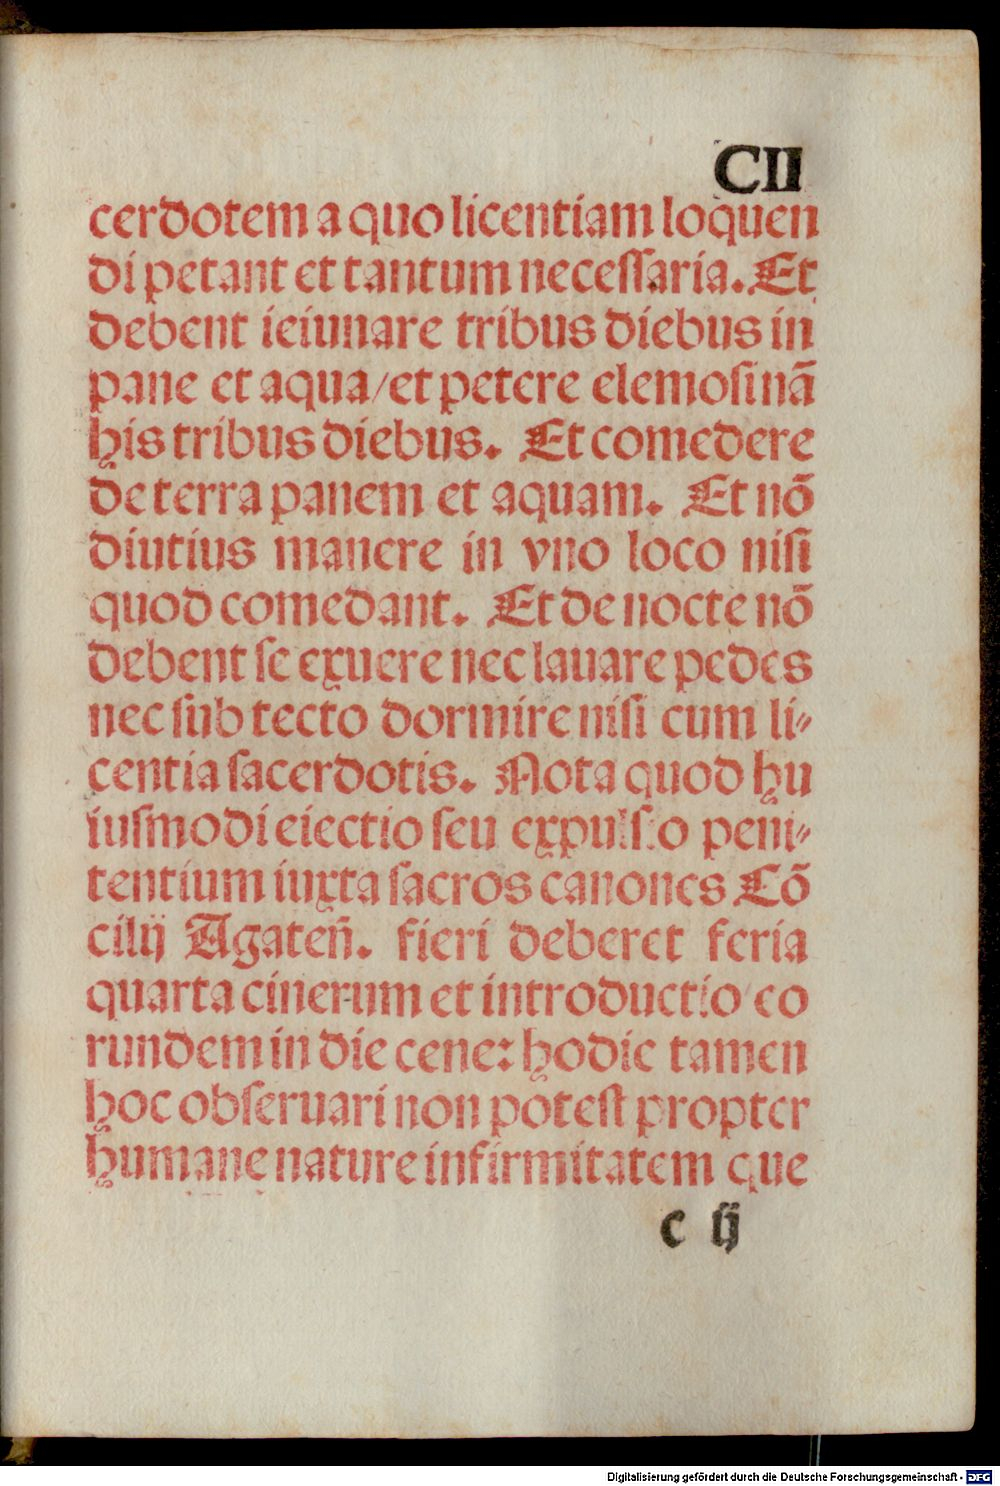 CII
cerdotem a quo licentiam loquen
di petant et tantum necessaria. Et
debent ieiunare tribus diebus in
pane et aqua/et petere elemosinā
his tribus diebus. Et comedere
de terra panem et aquam. Et nō
diutius manere in vno loco nisi
quod comedant. Et de nocte nō
debent se exuere nec lauare pedes
nec sub tecto dormire nisi cum li⸗
centia sacerdotis. Nota quod hu
iusmodi eiectio seu expulsio peni⸗
tentium iuxta sacros canones Cō
cilij Agateñ. fieri deberet feria
quarta cinerum et introductio eo
rundem in die cene: hodie tamen
hoc obseruari non potest propter
humane nature infirmitatem que
c ij
Digitalisierung gefördert durch die Deutsche Forschungsgemeinschaft - DFG